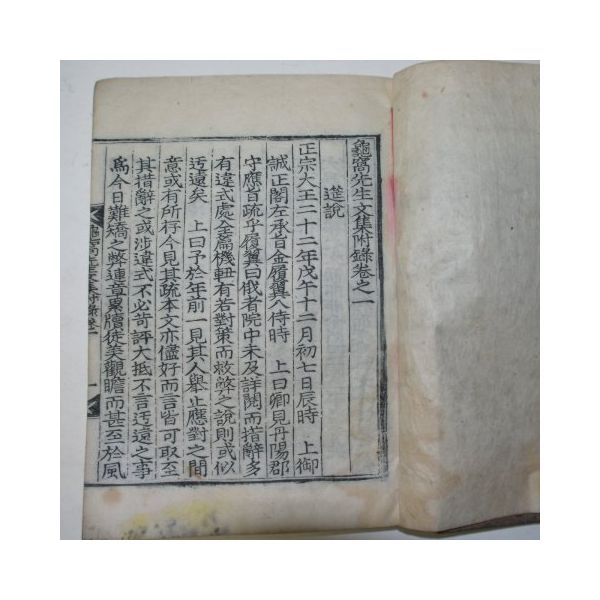 龜窩先生文集附錄卷之一
筵說
正宗大王二十二年戊午十二月初七日辰時 上御
誠正閣左承旨金履翼入侍時 上曰卿見丹陽郡
守應旨疏乎履翼曰俄者院中未及詳閱而措辭多
有違式處全篇機軸有若對策而救弊之說則或似
迂遠矣 上曰予於年前一見其人擧止應對之間
意或有所行今見其疏本文亦儘好而言皆可取至
其措辭之或涉違式不必苛評大抵不言迂遠之事
爲今日難矯之弊連章累牘徒美觀瞻而甚至於風
龜窩先生文集附錄卷一
一